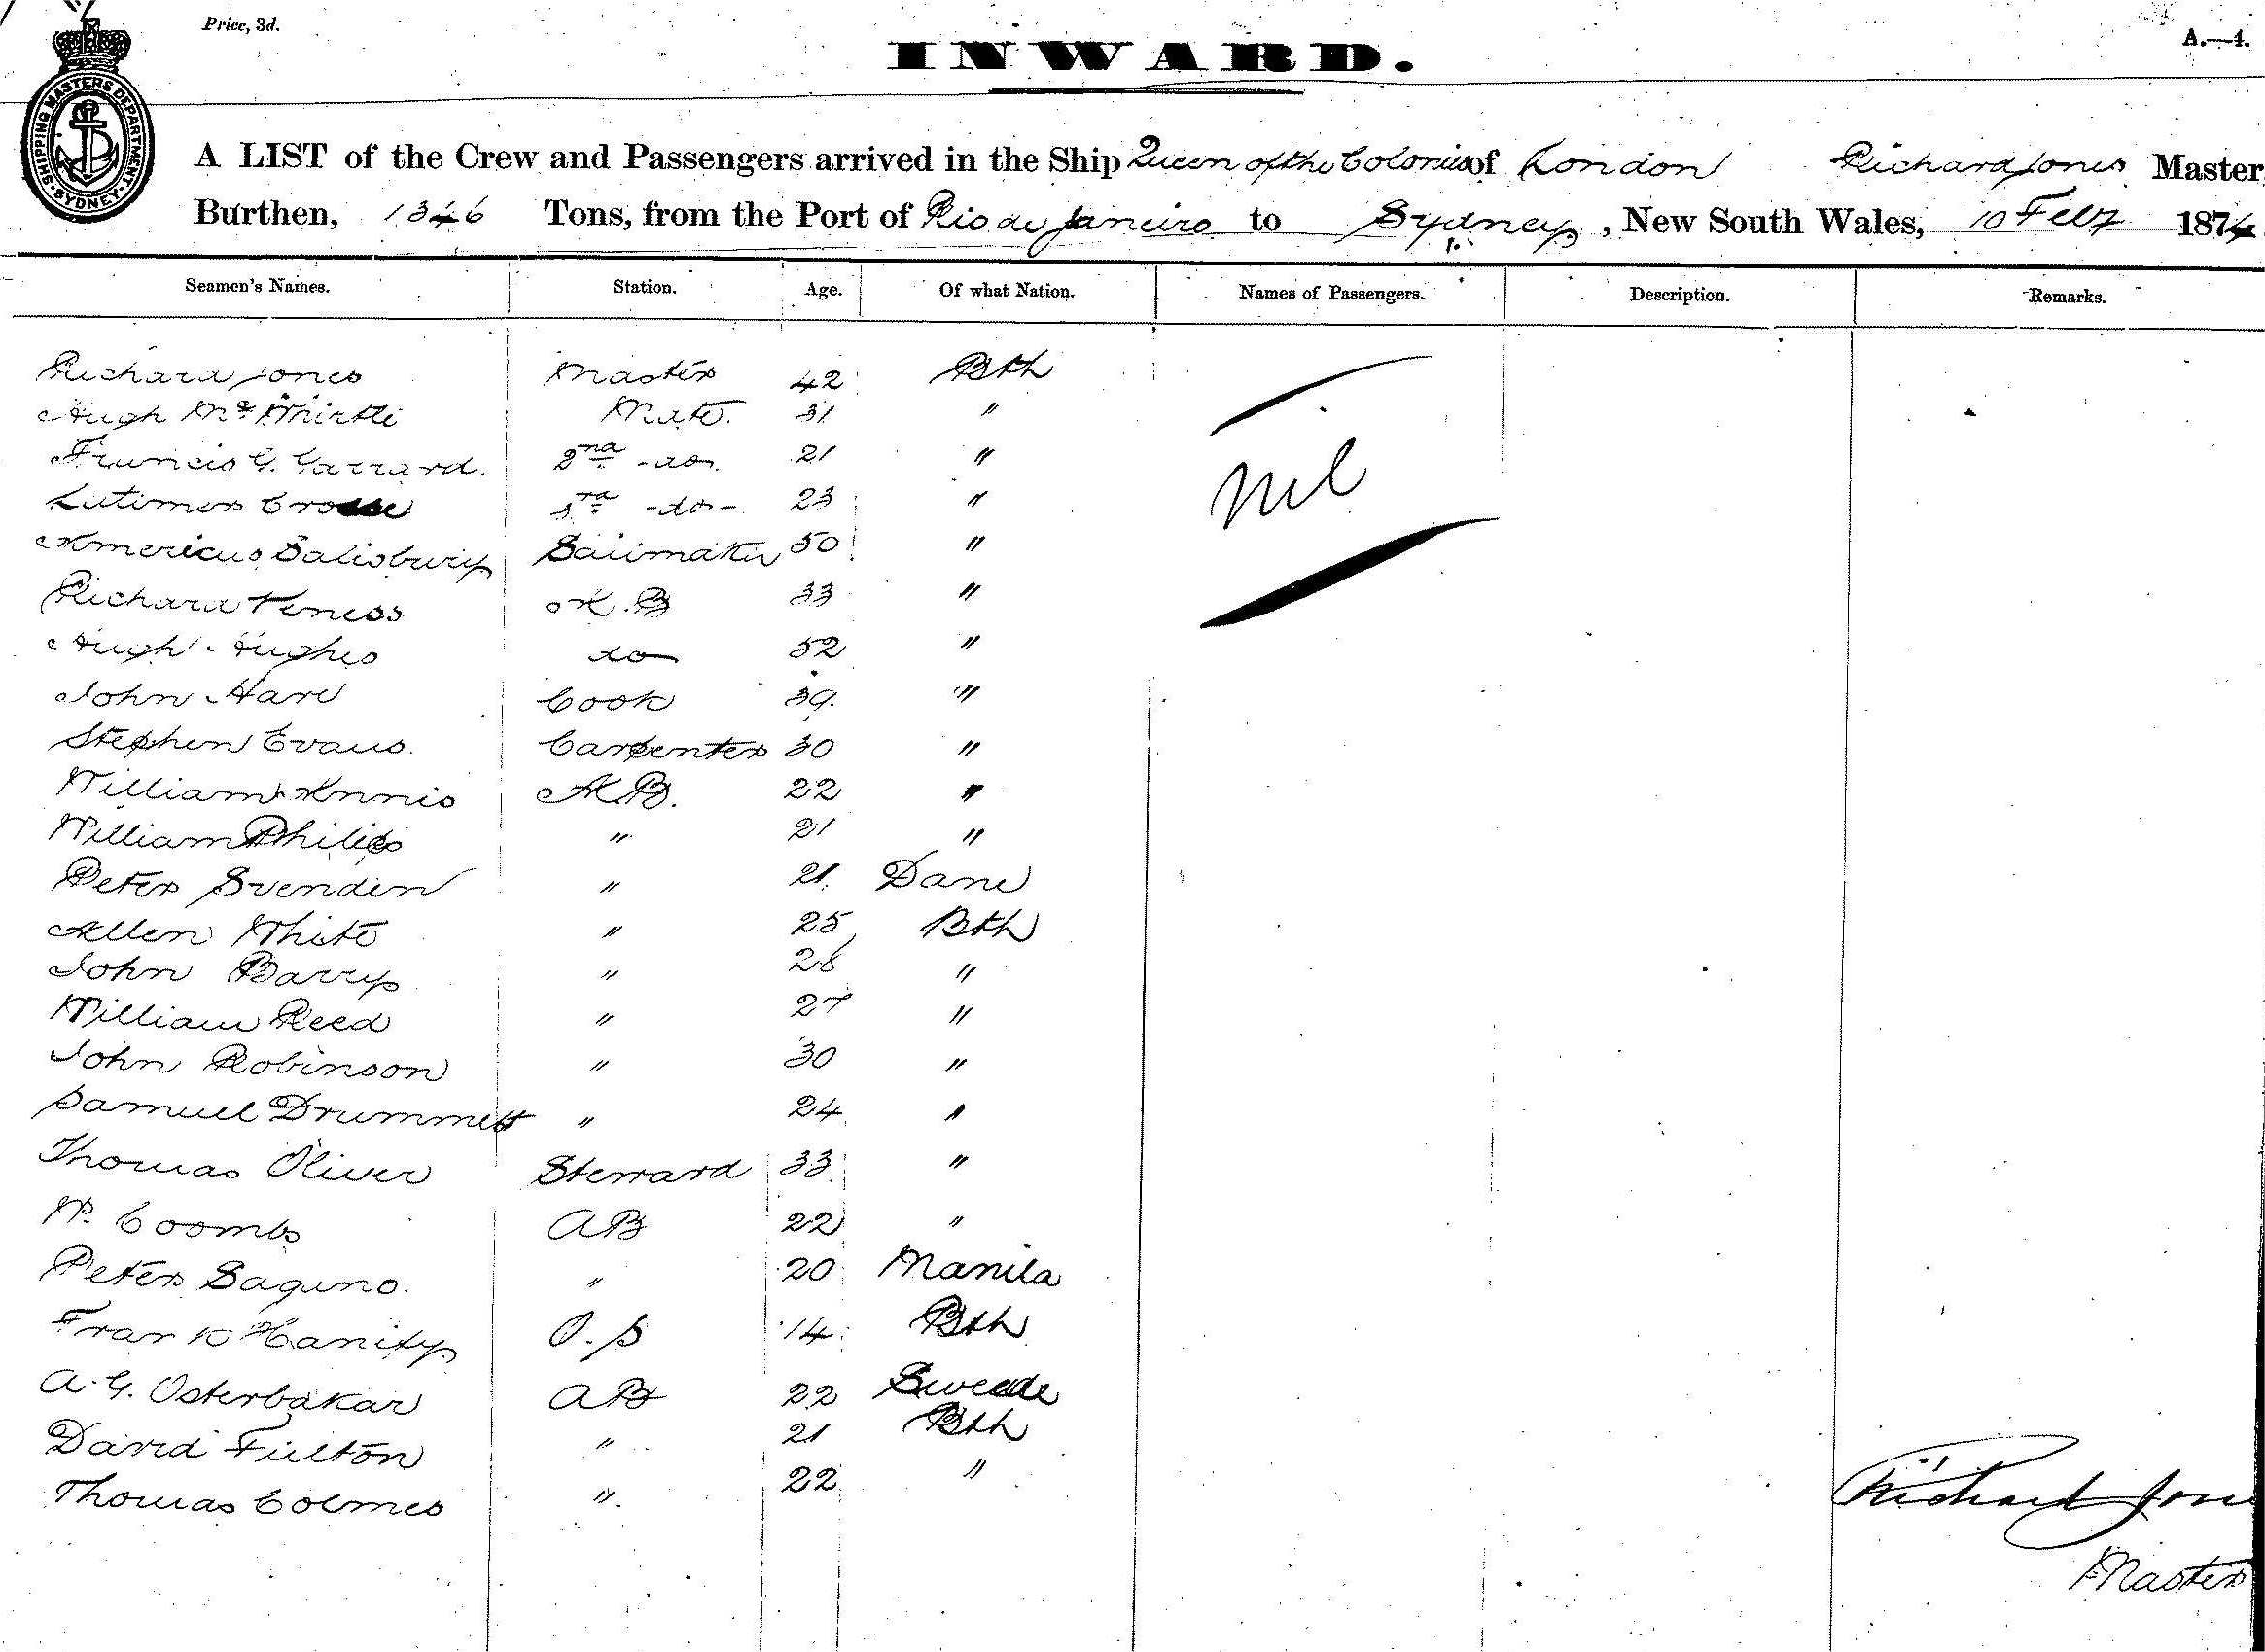 Price, 3d.
INWARD.
A.—4.
SHIPPING MASTERS DEPARTMENT. SYDNEY.
A LIST of the Crew and Passengers arrived in the Ship Queen of the Colonies of London Richard Jones Master
Burthen, 1346 Tons, from the Port of Rio de Janeiro to Sydney, New South Wales, 10 Feby 1874
Seamen's Names. Station. Age. Of what Nation. Names of Passengers. Description. Remarks.
Richard Jones Master 42 Bth
Hugh Mc Whirtle Mate. 31 "
Francis G. Garrard. 2nd -do. 21 "
Latimer Crosse 3rd -do- 23 "
nil
Americus Salisbury Sailmaker 50 "
Richard Veness A.B 33 "
Hugh Hughes do 52 "
John Hare Cook 39. "
Stephen Evans. Carpenter 30 "
William Annis A.B. 22 "
William Philips " 21 "
Peter Svendin " 21. Dane
Allen White " 25 Bth
John Barry " 28 "
William Reed " 27 "
John Robinson " 30 "
Samuel Drummett " 24 "
Thomas Oliver Steward 33. "
W. Coombs AB 22 "
Peter Saguno. " 20 Manila
Frank Hanify O.S 14 Bth
A. G. Osterbakar AB 22 Sweede
David Fulton " 21 Bth
Thomas Colmes " 22 "
Richard Jones
Master